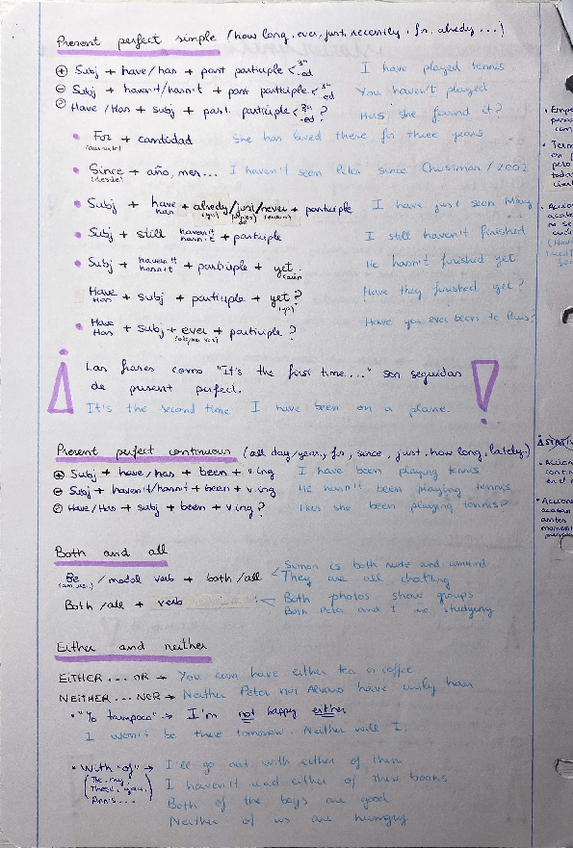 Present perfect simple (how long, ever, just, recently, for, already...)
+ Subj + have/has + past participle < 3ª -ed I have played tennis
- Subj + haven't/hasn't + past participle < 3ª -ed You haven't played
? Have/Has + subj + past participle < 3ª -ed ? Has she found it?
• For + cantidad She has lived there for three years
(durante)
• Since + año, mes... I haven't seen Peter since Christmas/2002
(desde)
• Subj + have/has + already/just/never + participle I have just seen Mary
(ya)
• Subj + still haven't/hasn't + participle I still haven't finished
• Subj + haven't/hasn't + participle + yet. He hasn't finished yet.
Have/Has + subj + participle + yet? Have they finished yet?
(ya)
• Have/Has + subj + ever + participle? Have you ever been to Paris?
(alguna vez)
¡ Las frases como "It's the first time...." son seguidas !
de present perfect.
It's the second time I have been on a plane.
Present perfect continuous (all day/year, for, since, just, how long, lately.)
+ Subj + have/has + been + v.ing I have been playing tennis
- Subj + haven't/hasn't + been + v.ing He hasn't been playing tennis
? Have/Has + subj + been + v.ing? Has she been playing tennis?
Both and all
Be / modal verb + both/all < Simon is both rude and
They are all chatting
Both/all + verb < Both photos show groups
Both Peter and I are studying
Either and neither
EITHER... OR → You can have either tea or coffee
NEITHER... NOR → Neither Peter nor Alvaro have curly hair
• "Yo tampoco" → I'm not happy either
I won't be there tomorrow. Neither will I.
• With "of" → I'll go out with either of them
(The, my, I haven't read either of these books
These, your, Both of the boys are good
Neither of us are hungry